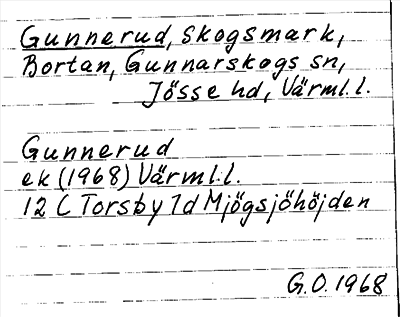 Gunnerud, Skogsmark,
Bortan, Gunnarskogs sn,
Jösse hd, Värml.l.
Gunnerud
ek (1968) Värml.l.
12 C Torsby 7d Mjögsjöhöjden
G.O. 1968